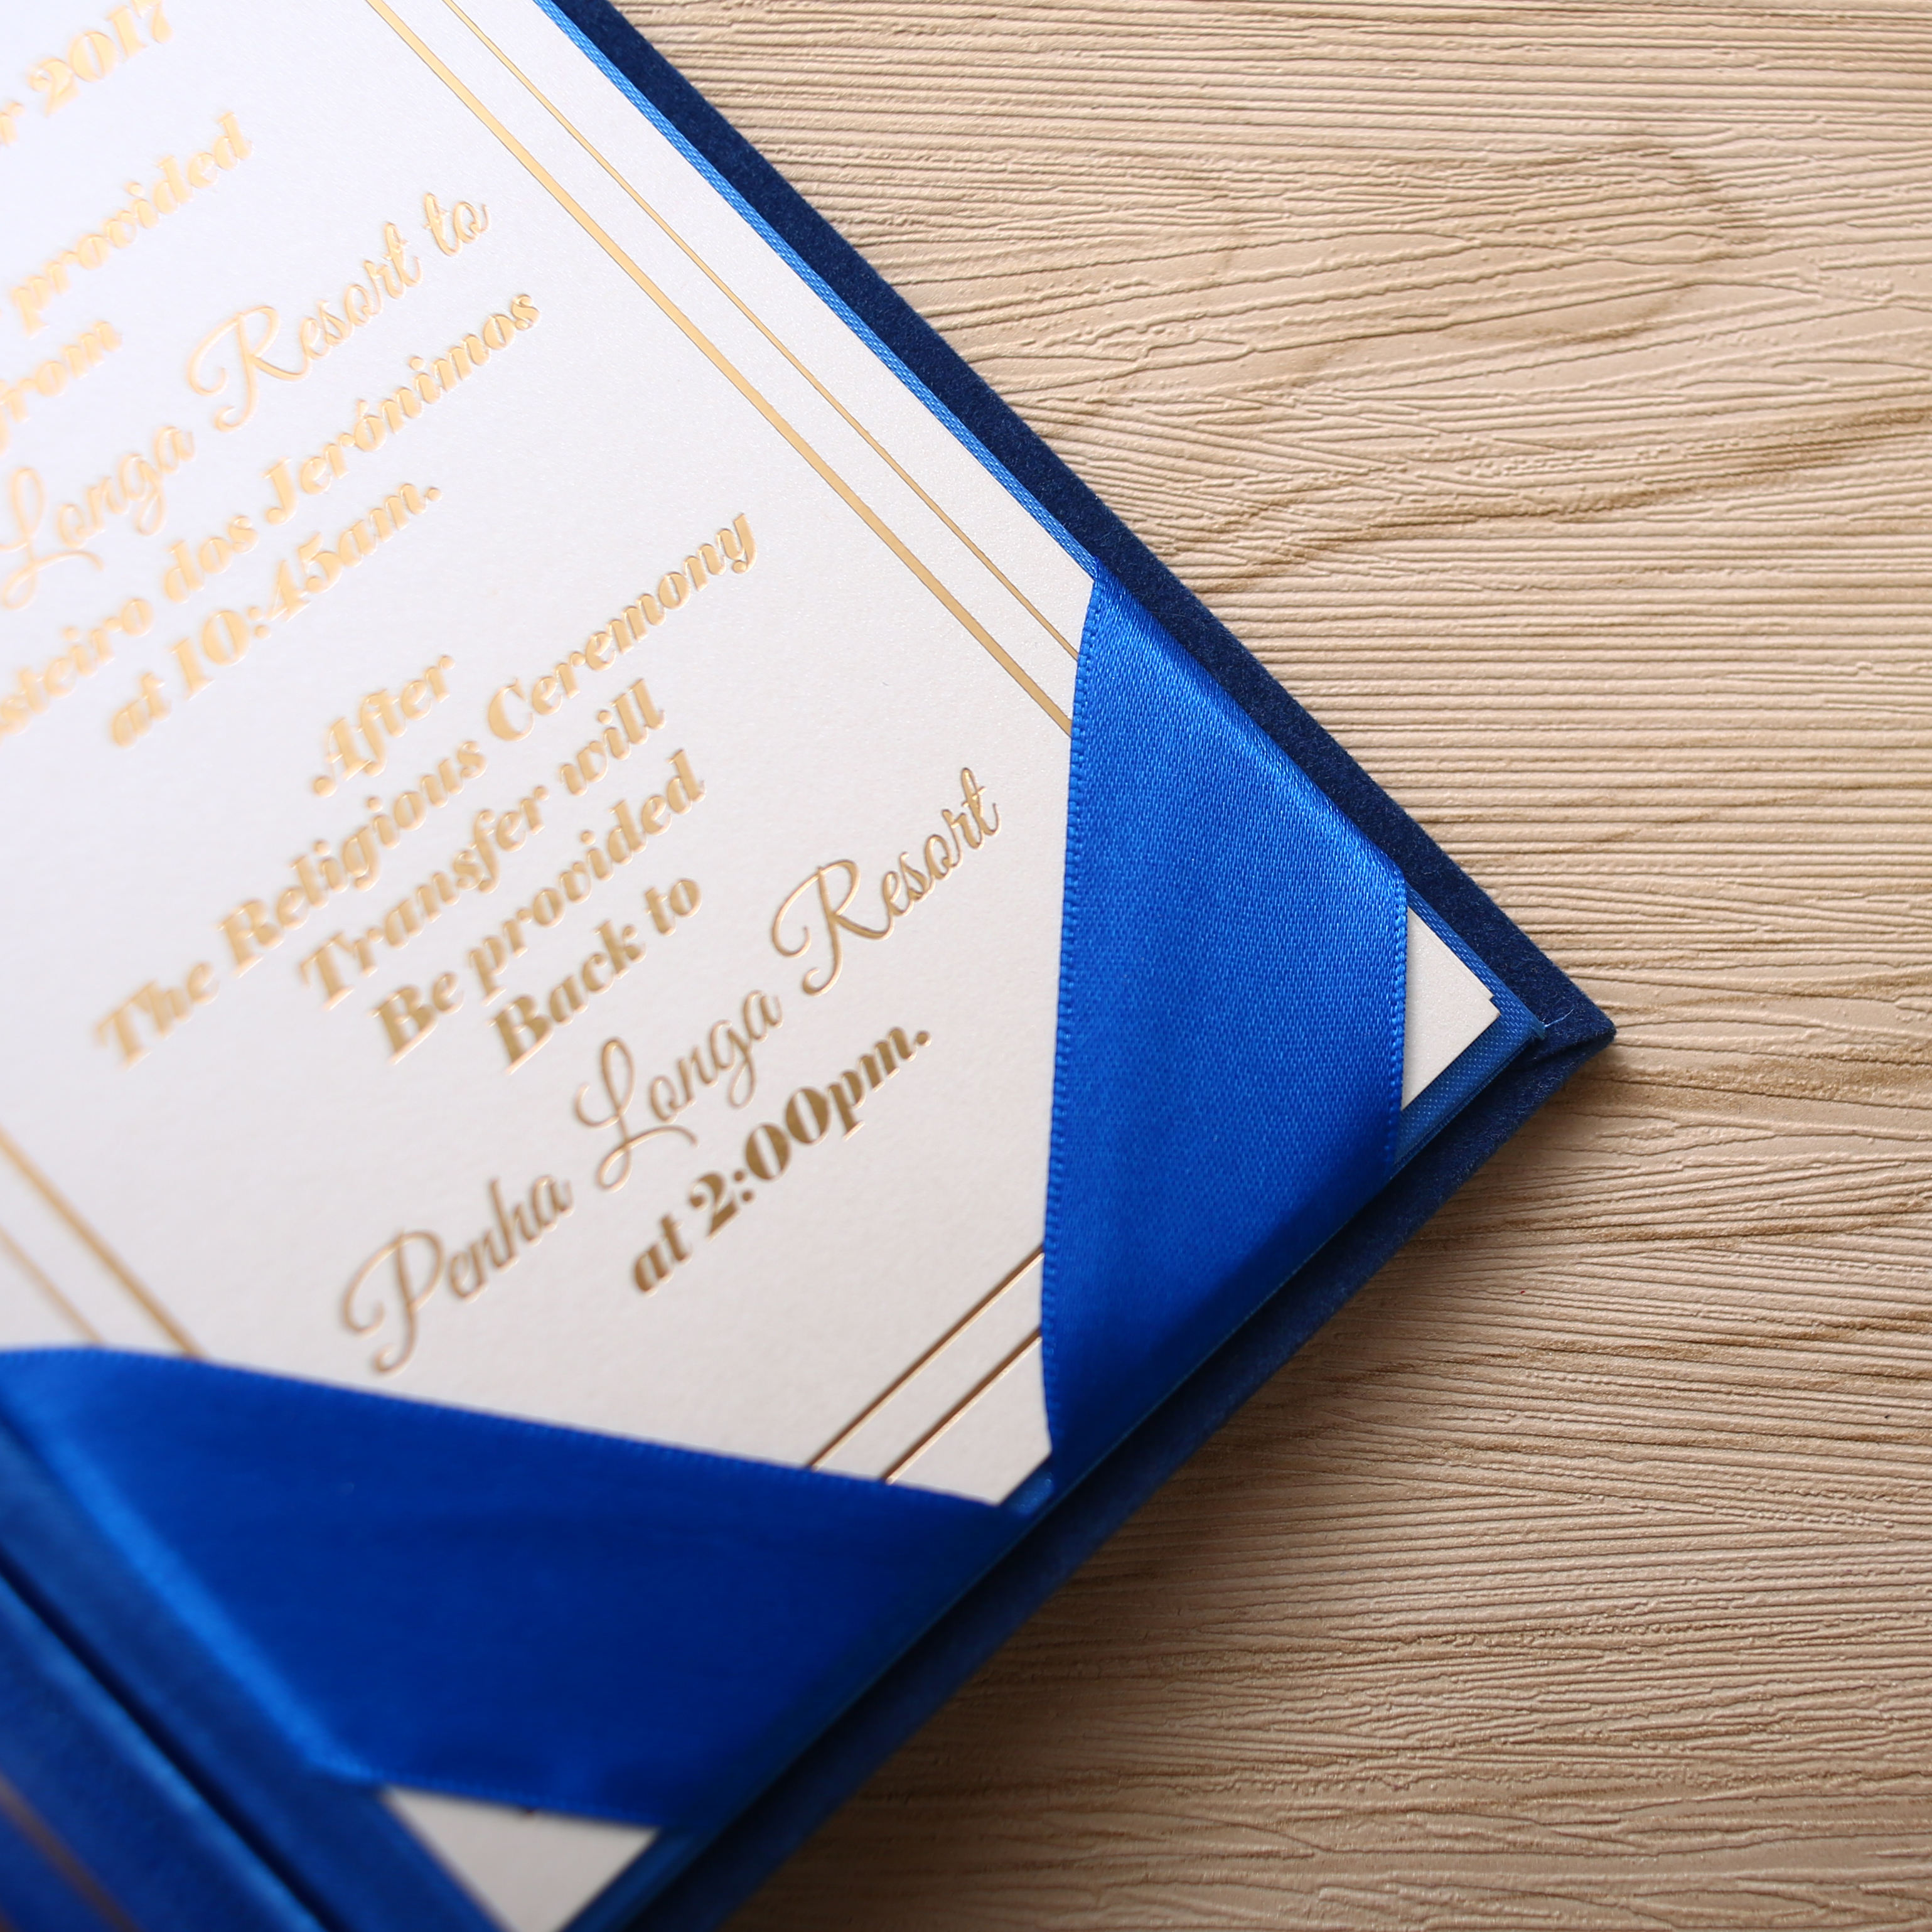 2017
provided
from
Longa Resort to
steiro dos Jerónimos
at 10:45am.
After
The Religious Ceremony
Transfer will
Be provided
Back to
Penha Longa Resort
at 2:00pm.